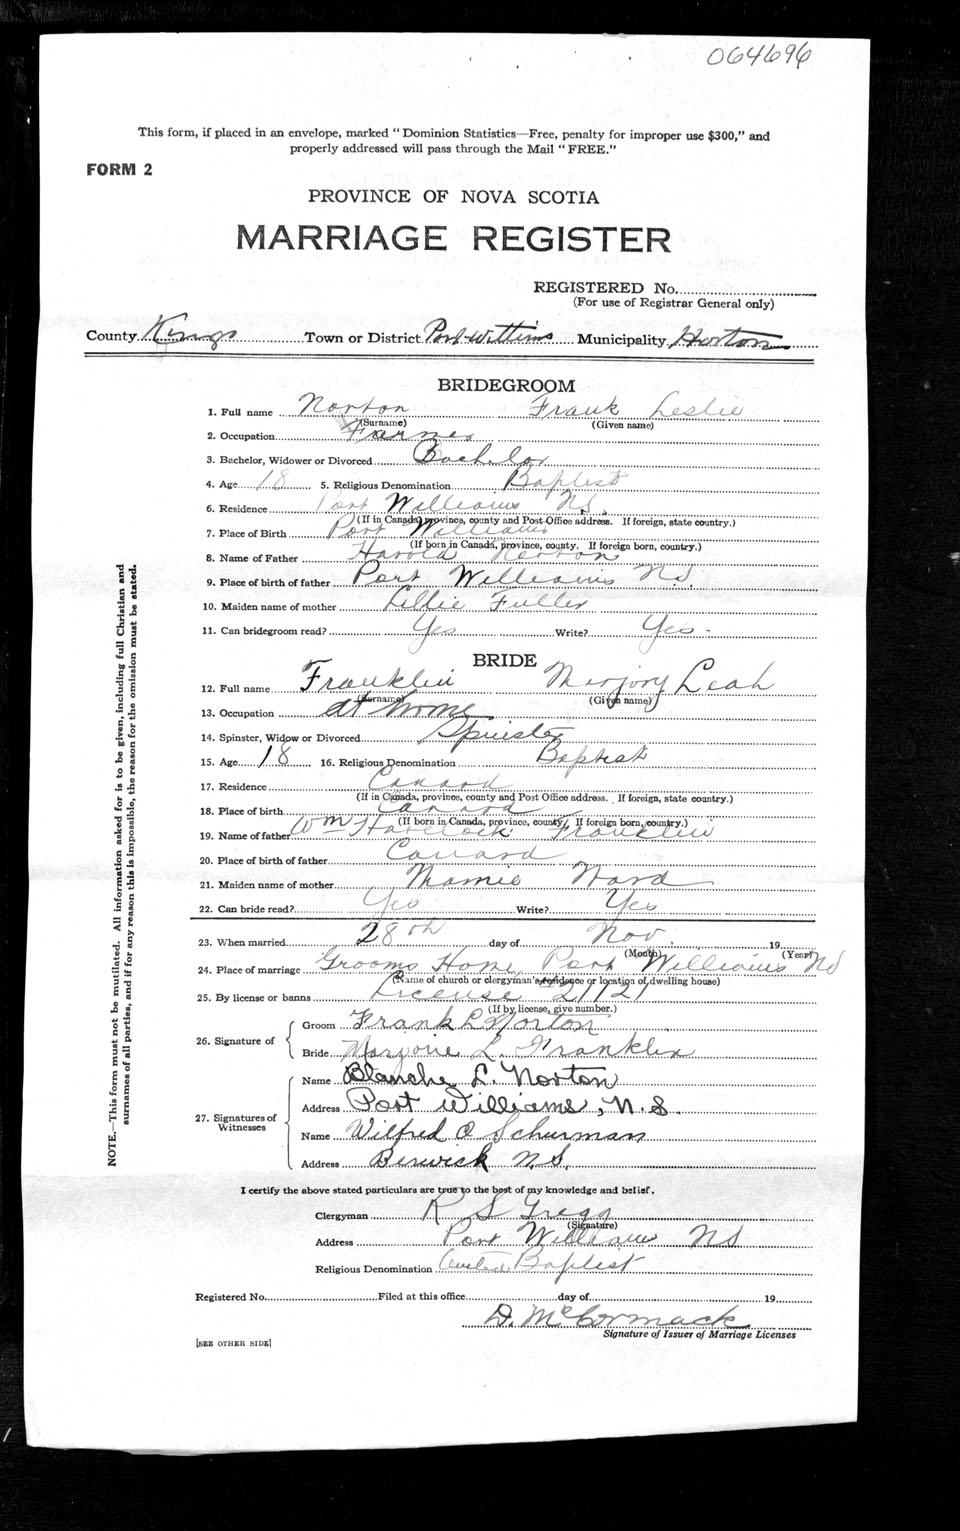 064696
This form, if placed in an envelope, marked "Dominion Statistics—Free, penalty for improper use $300," and
properly addressed will pass through the Mail "FREE."
FORM 2
PROVINCE OF NOVA SCOTIA
MARRIAGE REGISTER
REGISTERED No.
(For use of Registrar General only)
County Kings Town or District Port Williams Municipality Horton
BRIDEGROOM
1. Full name Norton Frank Leslie
(Surname) (Given name)
2. Occupation Farmer
3. Bachelor, Widower or Divorced Bachelor
4. Age 18 5. Religious Denomination Baptist
6. Residence Port Williams NS.
(If in Canada, province, county and Post Office address. If foreign, state country.)
7. Place of Birth Port Williams
(If born in Canada, province, county. If foreign born, country.)
8. Name of Father Harold Norton
9. Place of birth of father Port Williams NS
10. Maiden name of mother Lillie Fuller
11. Can bridegroom read? Yes Write? Yes -
BRIDE
12. Full name Franklin Marjory Leah
(Surname) (Given name)
13. Occupation at home
14. Spinster, Widow or Divorced Spinster
15. Age 18 16. Religious Denomination Baptist
17. Residence Canard
(If in Canada, province, county and Post Office address. If foreign, state country.)
18. Place of birth Canard
(If born in Canada, province, county. If foreign born, country.)
19. Name of father Wm Havelock Franklin
20. Place of birth of father Canard
21. Maiden name of mother Mamie Ward
22. Can bride read? Yes Write? Yes
23. When married 28th day of Nov 19
(Month) (Year)
24. Place of marriage Grooms Home, Port Williams NS
(Name of church or clergyman's residence or location of dwelling house)
25. By license or banns License 21121
(If by license, give number.)
26. Signature of
Groom Frank L Norton
Bride Marjorie L. Franklin
27. Signatures of Witnesses
Name Blanche L. Norton
Address Port Williams, N.S.
Name Wilfred O Schurman
Address Berwick N.S.
I certify the above stated particulars are true to the best of my knowledge and belief.
Clergyman R S Gregg
(Signature)
Address Port Williams NS
Religious Denomination United Baptist
Registered No. Filed at this office day of 19
D. McCormack
Signature of Issuer of Marriage Licenses
[SEE OTHER SIDE]
NOTE.—This form must not be mutilated. All information asked for is to be given, including full Christian and
surnames of all parties, and if for any reason this is impossible, the reason for the omission must be stated.